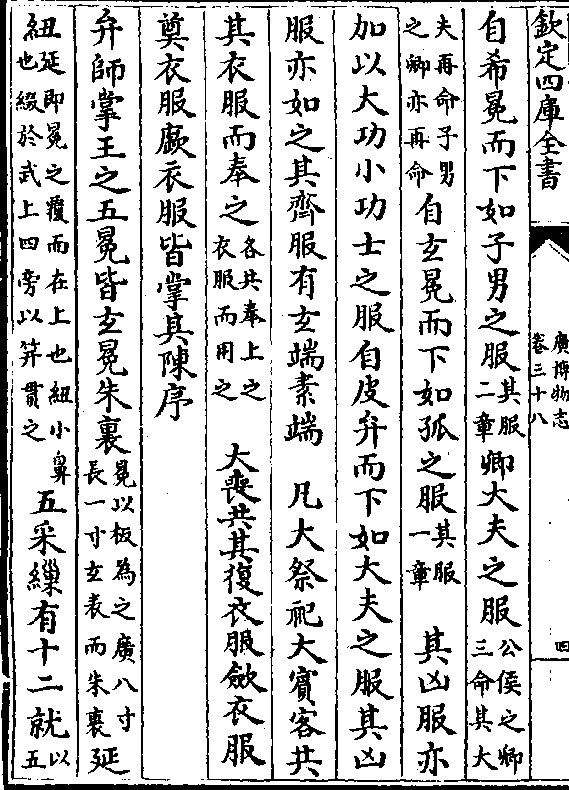 欽定四庫全書
廣博物志
卷三十八
四
自希冕而下如子男之服其服二章卿大夫之服公侯之卿三命其大
夫再命子男之卿亦再命自玄冕而下如孤之服其服一章 其凶服亦
加以大功小功士之服自皮弁而下如大夫之服其凶
服亦如之其齊服有玄端素端 凡大祭祀大賓客共
其衣服而奉之各共奉上之衣服而用之 大喪共其復衣服斂衣服
奠衣服廞衣服皆掌其陳序
弁師掌王之五冕皆玄冕朱裏冕以板為之廣八寸長一寸玄表而朱裏延
紐延即冕之覆而在上也紐小鼻也綴於武上四旁以笄貫之五采繅有十二就以五